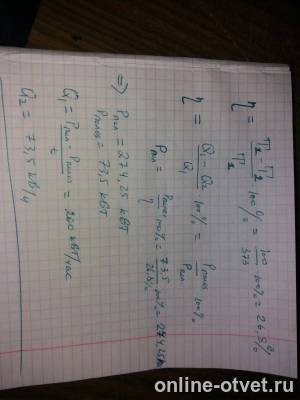 η = (T₁ - T₂)/T₁ 100% = 100/373 100% = 26,8%
η = (Q₁ - Q₂)/Q₁ 100% = Pполез/Pпол 100%
Pпол = Pполез 100%/η = 73,5/26,8% 100% = 274.25 кВт
=> Pпол = 274.25 кВт
Pполез = 73,5 кВт
Q₁ = (Pпол - Pполез)/t = 200 кВт/час
Q₂ = 73,5 кВ/ч
online-otvet.ru